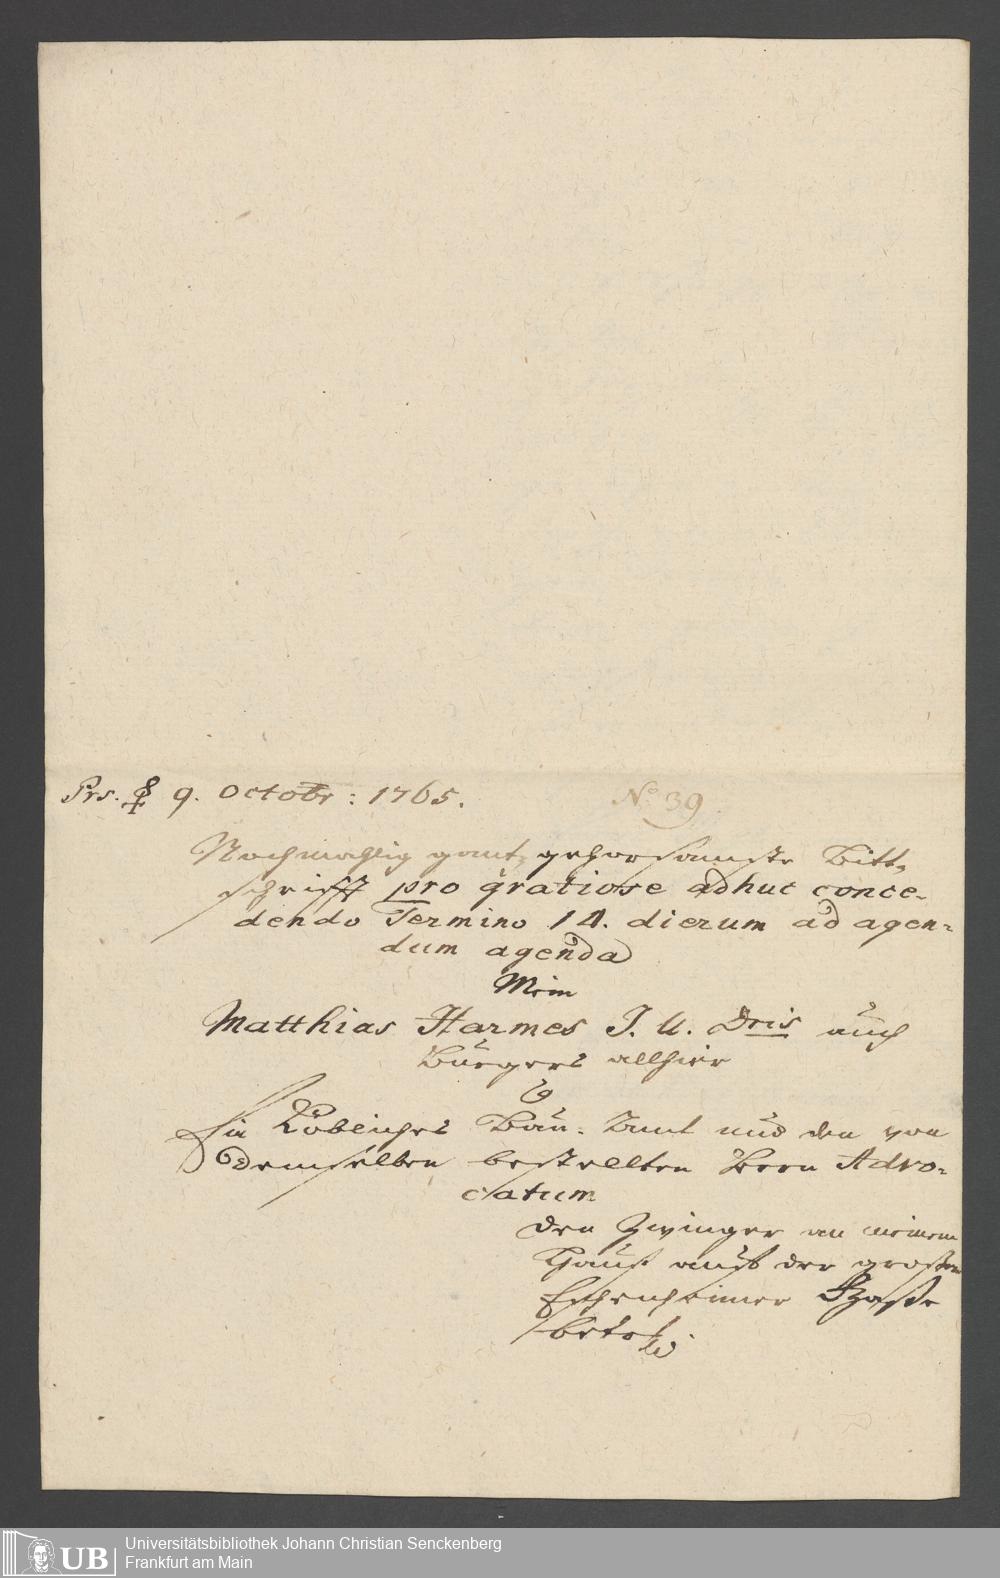 Prs. ☿ 9. Octobr: 1765.
No 39
Nochmahlig gantz gehorsamste Bitt-
schrifft pro gratiose adhuc conce-
dendo Termino 14. dierum ad agen-
dum agenda
Mein
Matthias Harmes J. U. Dris auch
Burgers allhier
Ein Löbliches Bau-Amt und den von
Demselben bestellten Herrn Advo-
catum
den Zwinger an meinem
Hauß auf der großen
Eschenheimer Gaße
betr.
Universitätsbibliothek Johann Christian Senckenberg
Frankfurt am Main
UB